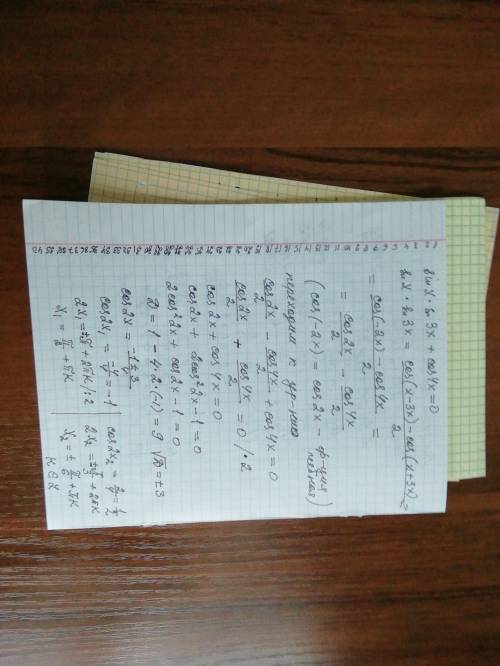 sin x · sin 3x + cos 4x = 0
sin x · sin 3x = cos(x-3x) - cos(x+3x) / 2 =
= cos(-2x) - cos 4x / 2 =
= cos 2x / 2 - cos 4x / 2
(cos(-2x) = cos 2x - ф-ция чётная)
переходим к ур-нию
cos 2x / 2 - cos 4x / 2 + cos 4x = 0
cos 2x / 2 + cos 4x / 2 = 0 / · 2
cos 2x + cos 4x = 0
cos 2x + 2cos² 2x - 1 = 0
2cos² 2x + cos 2x - 1 = 0
D = 1 - 4 · 2 · (-1) = 9 √D = ±3
cos 2x = -1 ± 3 / 4
cos 2x₁ = -4/4 = -1 | cos 2x₂ = 2/4 = 1/2
2x₁ = ±π + 2πk / : 2 | 2x₂ = ± π/3 + 2πk
x₁ = π/2 + πk | x₂ = ± π/6 + πk
k ∈ Z